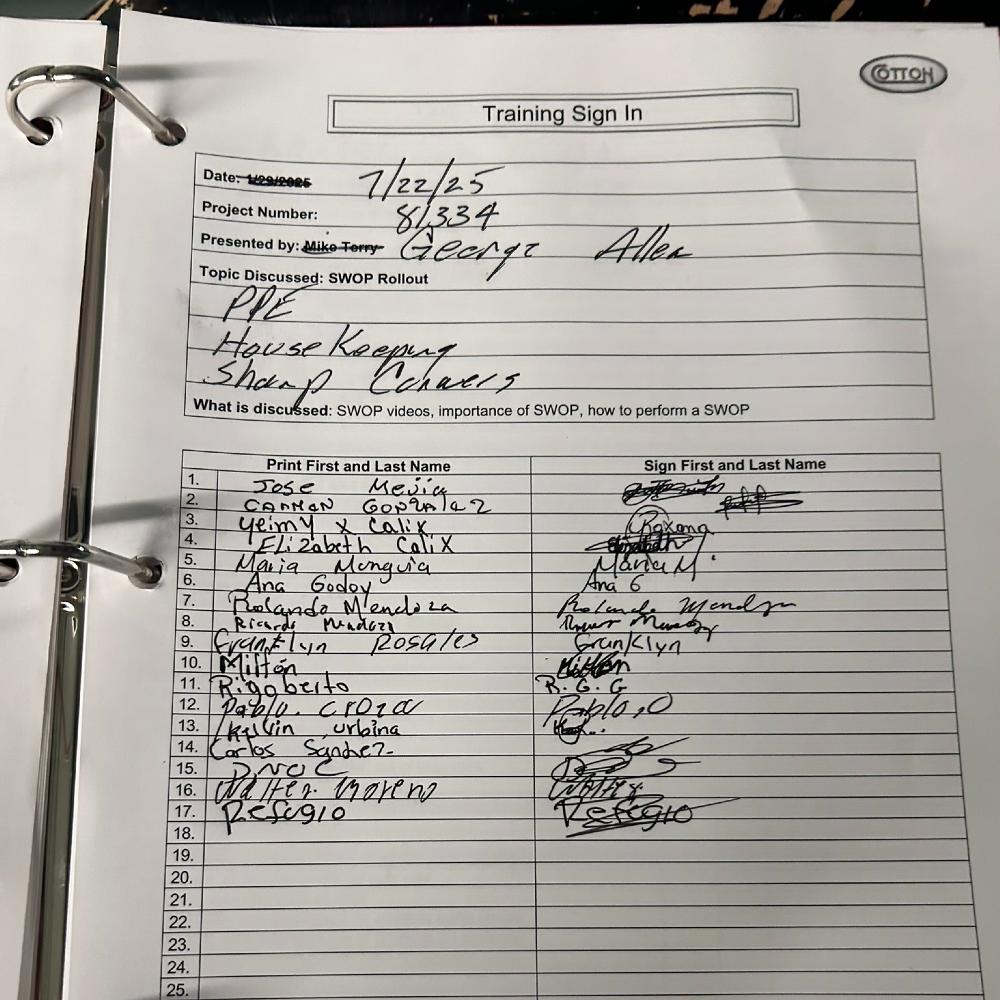 COTTON
Training Sign In
Date: 1/29/2025 7/22/25
Project Number: 81334
Presented by: Mike Terry George Allen
Topic Discussed: SWOP Rollout
PPE
House Keeping
Sharp Corners
What is discussed: SWOP videos, importance of SWOP, how to perform a SWOP
Print First and Last Name Sign First and Last Name
1. Jose Mejia
2. CARMEN GONZALEZ
3. Yeimy x Calix Roxana
4. Elizabeth Calix
5. Maria Munguia Maria M.
6. Ana Godoy Ana G
7. Rolando Mendoza Rolando
8. Ricardo
9. Franklyn Rosales Franklyn
10. Milton Milton
11. Rigoberto R. G. G
12. Pablo. Pablo, O
13. Kelvin urbina
14. Carlos Sanchez
15.
16. Walter Moreno Walter
17. Refugio Refugio
18.
19.
20.
21.
22.
23.
24.
25.